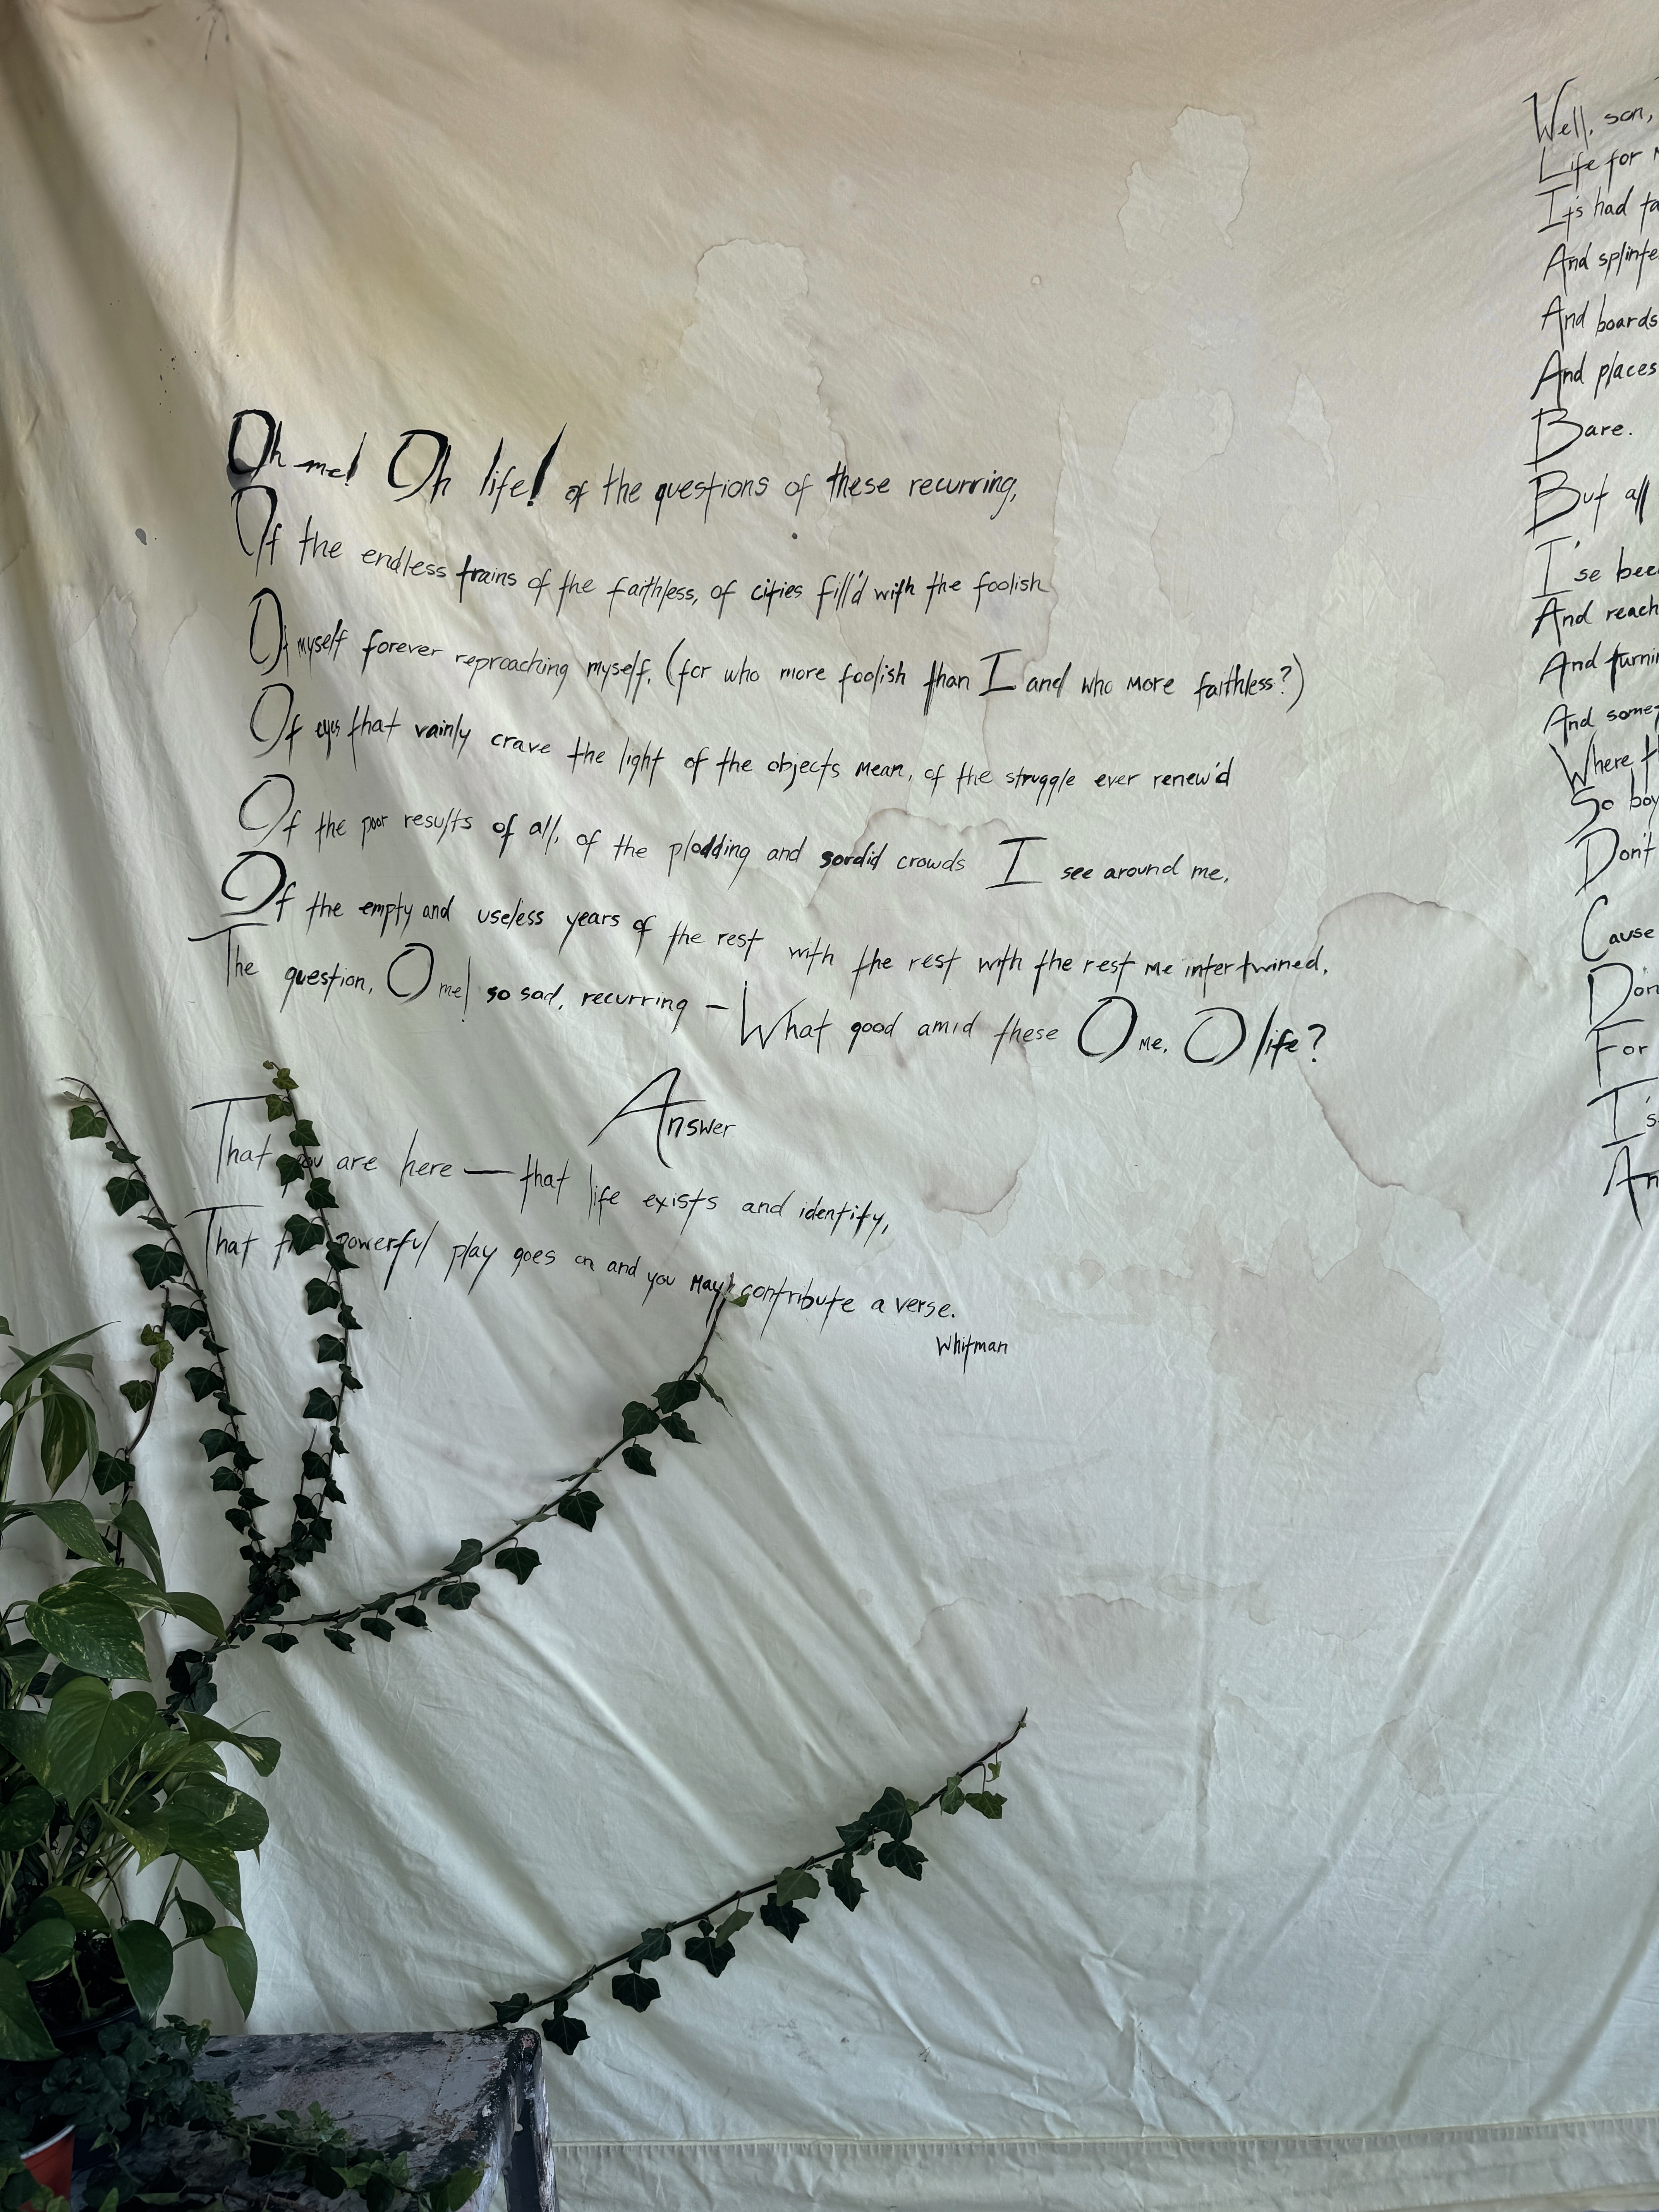 Oh me! Oh life! of the questions of these recurring,
Of the endless trains of the faithless, of cities fill'd with the foolish
Of myself forever reproaching myself, (for who more foolish than I and who more faithless?)
Of eyes that vainly crave the light of the objects mean, of the struggle ever renew'd
Of the poor results of all, of the plodding and sordid crowds I see around me,
Of the empty and useless years of the rest with the rest with the rest me intertwined,
The question, O me! so sad, recurring — What good amid these O me, O life?
Answer
That you are here — that life exists and identity,
That the powerful play goes on and you may contribute a verse.
Whitman
Well, son,
Life for
It's had
And
And boards
And places
Bare.
But all
I'se
And reach
And
And some
Where
So boy
Don't
Cause
For